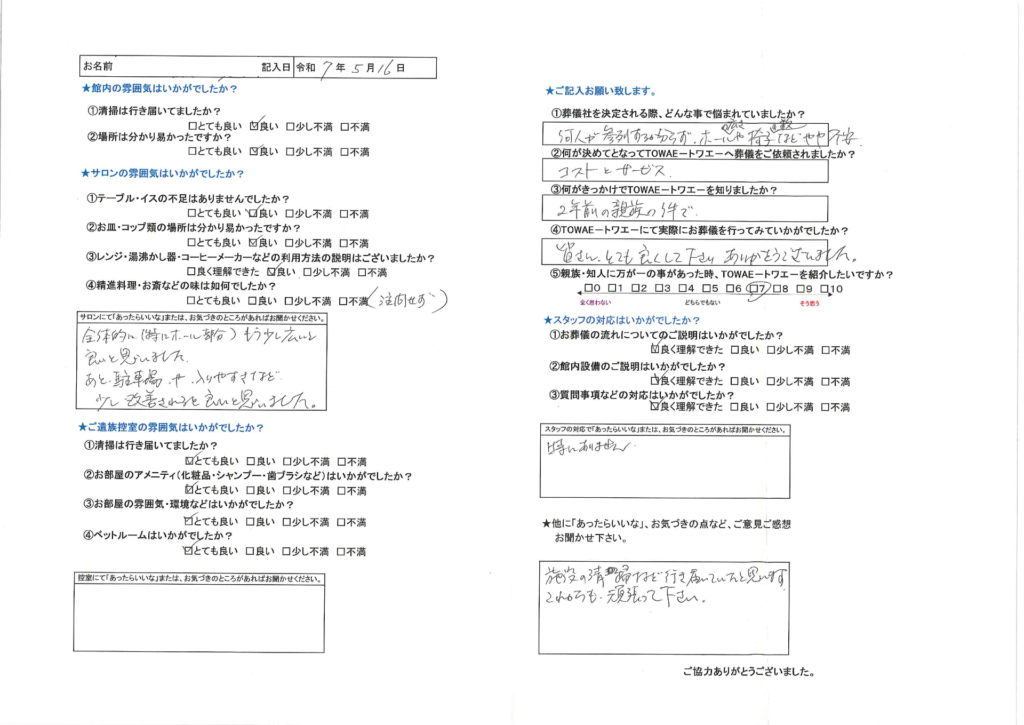 お名前 記入日 令和 7年 5月16日
★館内の雰囲気はいかがでしたか？
①清掃は行き届いてましたか？
□とても良い ☑良い □少し不満 □不満
②場所は分かり易かったですか？
□とても良い ☑良い □少し不満 □不満
★サロンの雰囲気はいかがでしたか？
①テーブル・イスの不足はありませんでしたか？
□とても良い ☑良い □少し不満 □不満
②お皿・コップ類の場所は分かり易かったですか？
□とても良い ☑良い □少し不満 □不満
③レンジ・湯沸かし器・コーヒーメーカーなどの利用方法の説明はございましたか？
□良く理解できた ☑良い □少し不満 □不満
④精進料理・お斎などの味は如何でしたか？
□とても良い □良い □少し不満 □不満 (注向せず)
サロンにて「あったらいいな」または、お気づきのところがあればお聞かせください。
全体的に(特にホール部分)もう少し広いと
良いと思いました。
あと、駐車場や入りやすさなど
少し改善されると良いと思いました。
★ご遺族控室の雰囲気はいかがでしたか？
①清掃は行き届いてましたか？
☑とても良い □良い □少し不満 □不満
②お部屋のアメニティ(化粧品・シャンプー・歯ブラシなど)はいかがでしたか？
☑とても良い □良い □少し不満 □不満
③お部屋の雰囲気・環境などはいかがでしたか？
☑とても良い □良い □少し不満 □不満
④ベットルームはいかがでしたか？
☑とても良い □良い □少し不満 □不満
控室にて「あったらいいな」または、お気づきのところがあればお聞かせください。
★ご記入お願い致します。
①葬儀社を決定される際、どんな事で悩まれていましたか？
何人が参列するか分らず、ホールや広さ椅子の数などやや不安
②何が決めてとなってTOWAEートワエーへ葬儀をご依頼されましたか？
コストとサービス
③何がきっかけでTOWAEートワエーを知りましたか？
2年前の親族の件で
④TOWAEートワエーにて実際にお葬儀を行ってみていかがでしたか？
皆さん、とても良くして下さり ありがとうございました。
⑤親族・知人に万が一の事があった時、TOWAEートワエーを紹介したいですか？
□0 □1 □2 □3 □4 □5 □6 □7 □8 □9 □10
全く思わない どちらでもない そう思う
★スタッフの対応はいかがでしたか？
①お葬儀の流れについてのご説明はいかがでしたか？
☑良く理解できた □良い □少し不満 □不満
②館内設備のご説明はいかがでしたか？
☑良く理解できた □良い □少し不満 □不満
③質問事項などの対応はいかがでしたか？
☑良く理解できた □良い □少し不満 □不満
スタッフの対応で「あったらいいな」または、お気づきのところがあればお聞かせください。
特にありません
★他に「あったらいいな」、お気づきの点など、ご意見ご感想
お聞かせ下さい。
施設の清掃など行き届いていたと思います
これからも、頑張って下さい。
ご協力ありがとうございました。